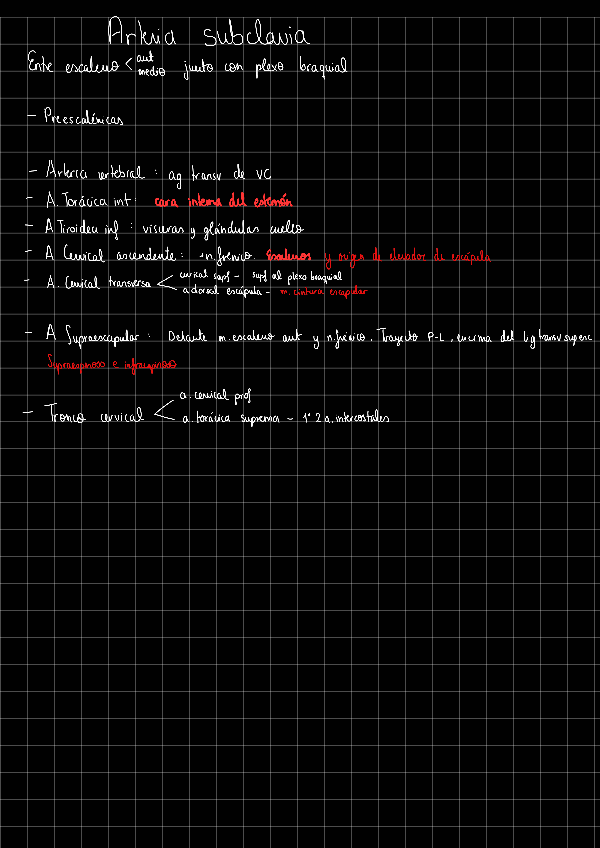 Arteria subclavia
Entre escaleno < ant
medio junto con plexo braquial
- Preescalénicas
- Arteria vertebral : ag transv de VC
- A. Torácica int : cara interna del esternón
- A Tiroidea inf : visceras y glándulas cuello
- A Cervical ascendente : n.frénico. Escalenos y origen de elevador de escápula
- A. Cervical transversa < cervical supf - supf al plexo braquial
a dorsal escápula - m. cintura escapular
- A Supraescapular : Delante m. escaleno ant y n.frénico. Trayecto P-L, encima del lig transv supesc
Supraespinoso e infraespinoso
- Tronco cervical < a. cervical prof
a. torácica suprema - 1ª 2 a. intercostales